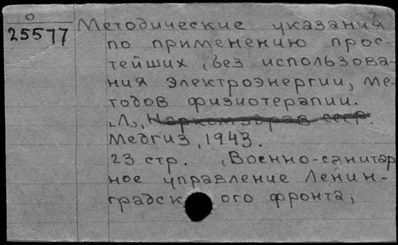 О
25577
Методические указания
по применению прос-
тейших, без использова-
ния электроэнергии, ме-
тодов физиотерапии.
Л., Наркомздрав СССР.
Медгиз, 1943.
23 стр. , Военно-санитар
ное управление Ленин-
градск ого фронта,